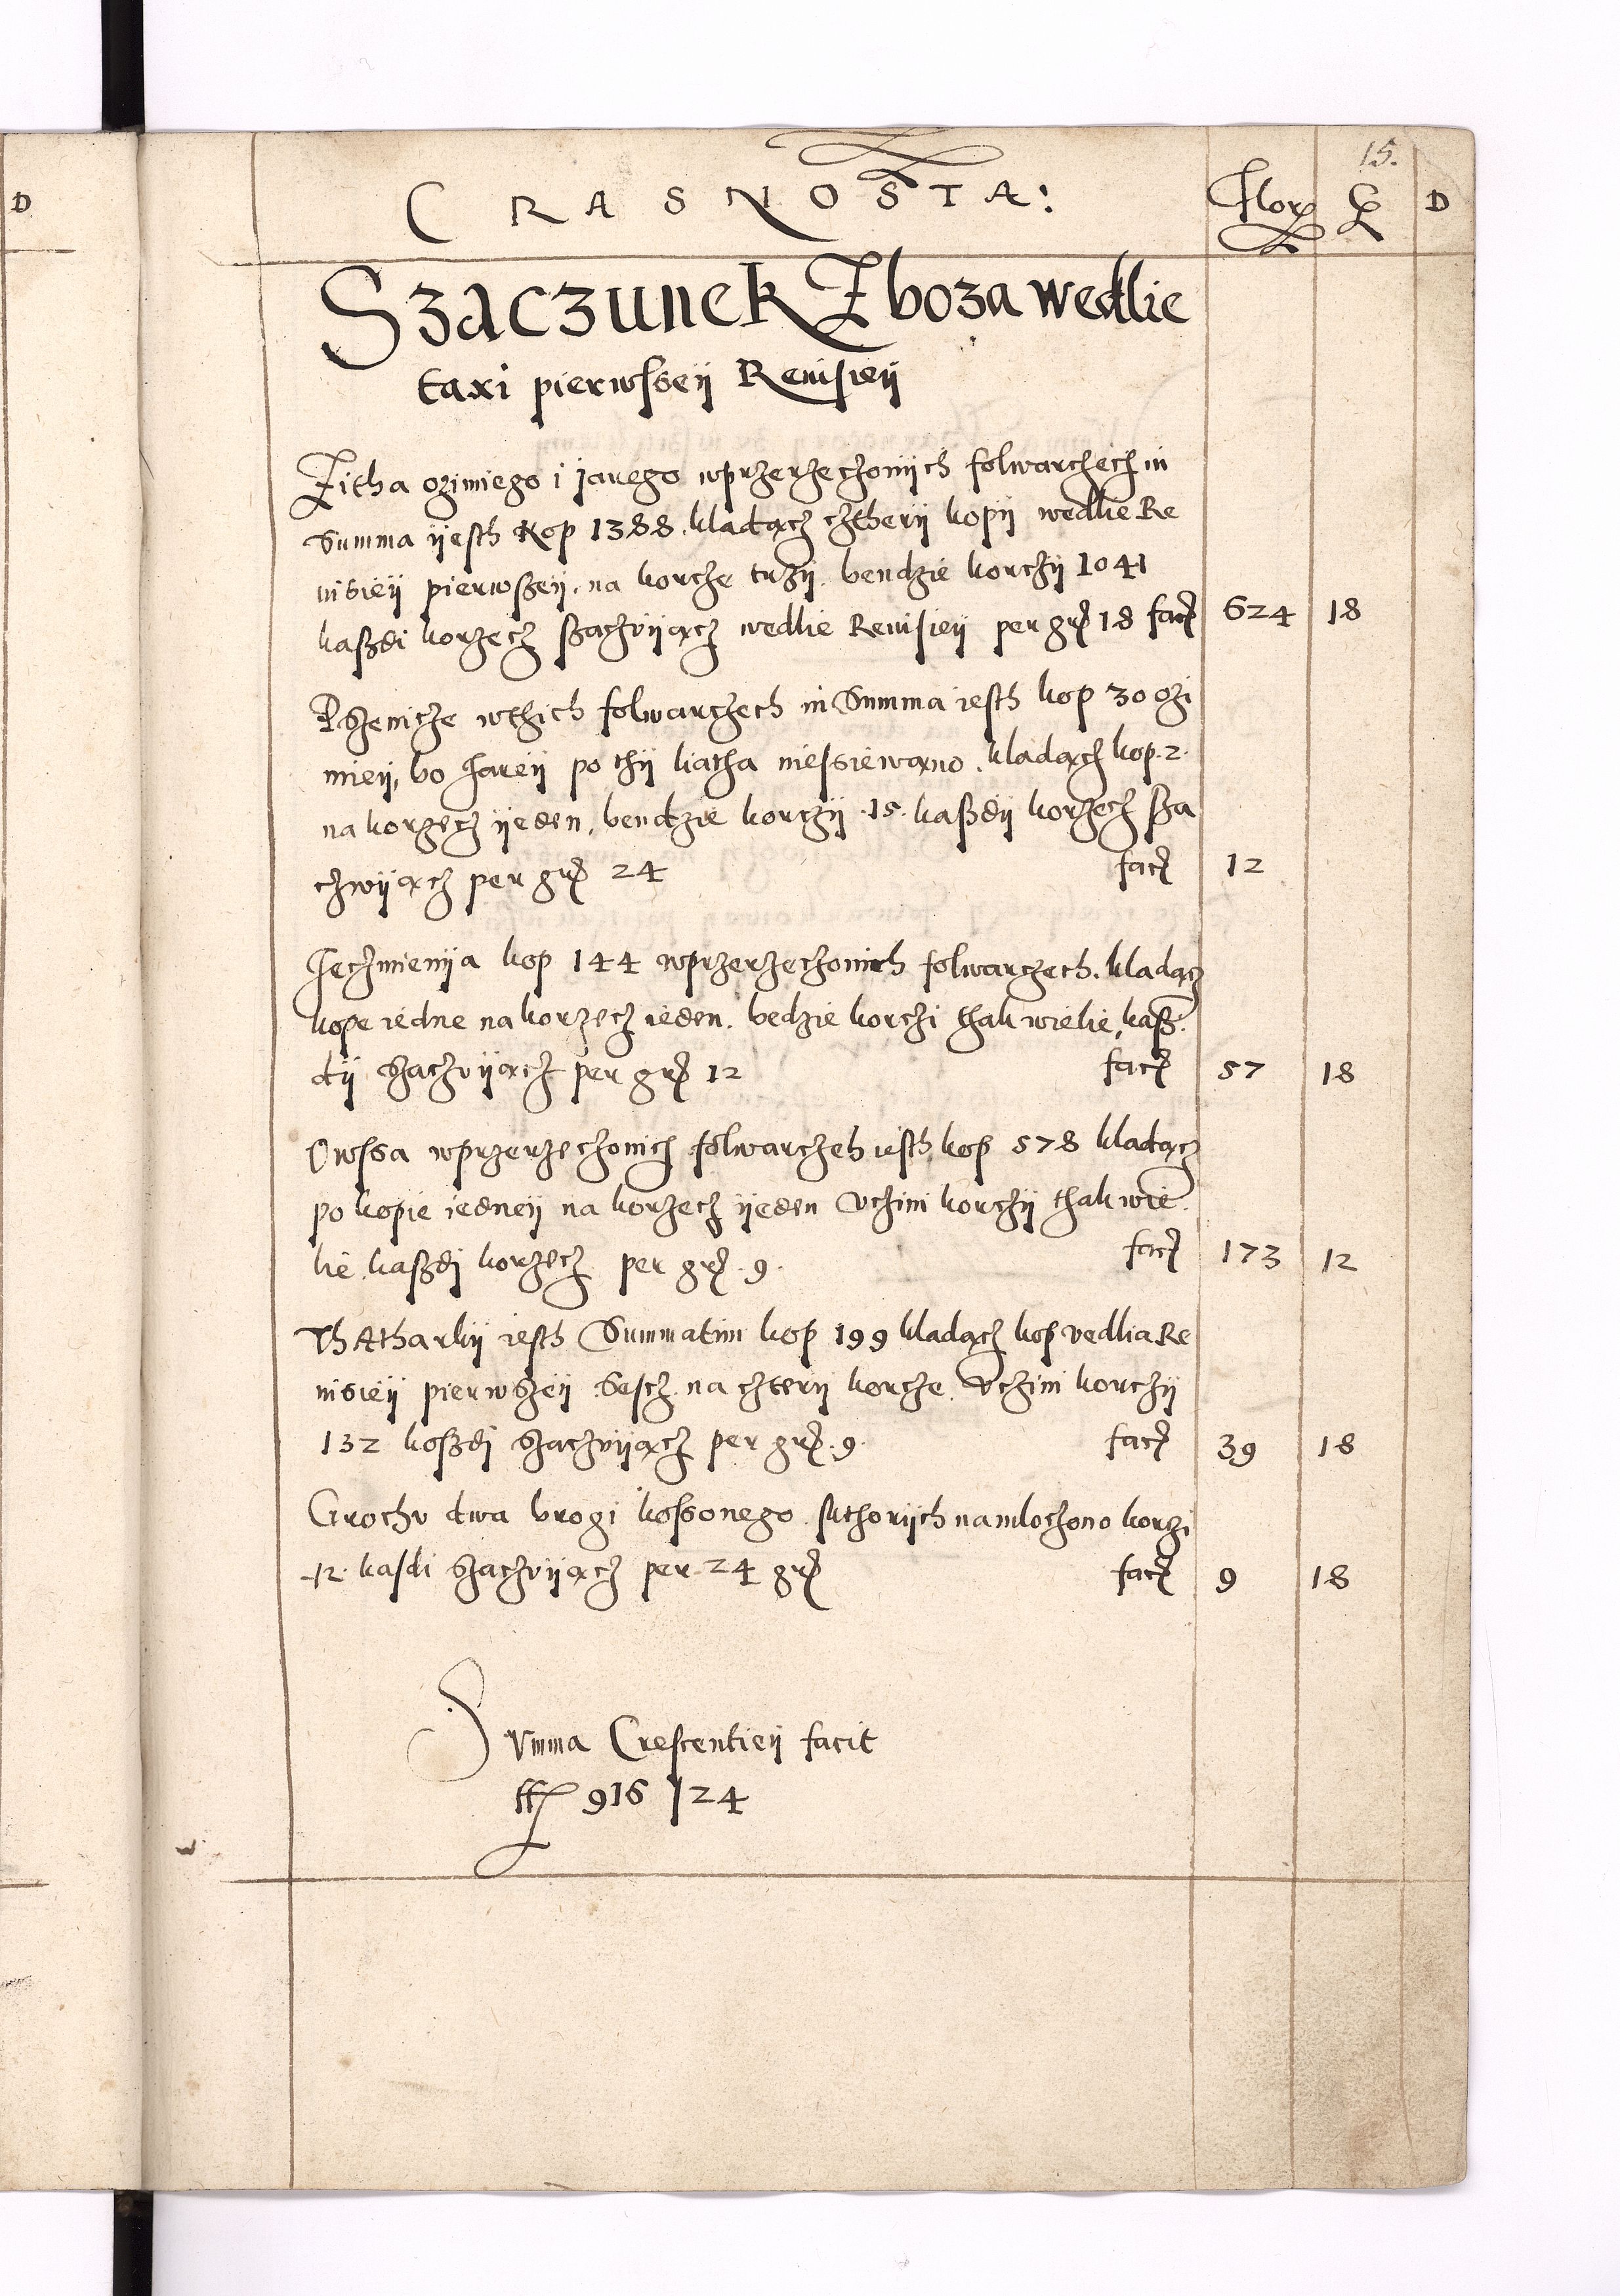 15.
D
CRASNOSTA: Flor G D
Szaczunek Zboza wedlie
taxi pierwsseÿ Reuisieÿ
Zitha ozimiego i jarego wprzerzeczoniich folwarczech in
Summa ÿesth Kop 1388. kladącz cztherÿ kopÿ wedlie Re
uisieÿ pierwszeÿ, na korcze trzÿ. bendzie korczÿ 1041
kaszdi korzecz szaczuÿącz wedlie Reuisieÿ per grꝭ 18 facꝭ 624 18
Pszenicze wthich folwarczech in Summa iesth kop 30 ozi
mieÿ, bo Jareÿ po thÿ liatha niessiewano. kladącz kop. 2.
na korzecz ÿeden, bendzie korczÿ .15. kaszdÿ korzecz sza
czwÿącz per grꝭ 24 facꝭ 12
Jeczmienÿa kop 144 wprzerzeczonich folwarczech. kladącz
kope iedne na korzecz ieden. bedzie korczi thak wielie, kasz.
dÿ szaczuÿącz per grꝭ 12 facꝭ 57 18
Owssa wprzerzeczonich folwarczeh iesth kop 578 kladącz
po kopie iedneÿ na korzecz ÿeden vczini korczÿ thak wie
lie. kaszdj korzecz per grꝭ .9. facꝭ 173 12
ThAtharkÿ iesth Summatim kop 199 kladącz kop vedlia Re
uisieÿ pierwszeÿ sescz na czterÿ korcze. vczini korczÿ
132 koszdj szaczuÿącz per grꝭ .9. facꝭ 39 18
Grochv dwa brogi kossonego. skthorÿch namloczono korzi
.12. kasdi szaczuÿącz per 24 grꝭ facꝭ 9 18
Summa Crescentieÿ facit
ff 916 | 24